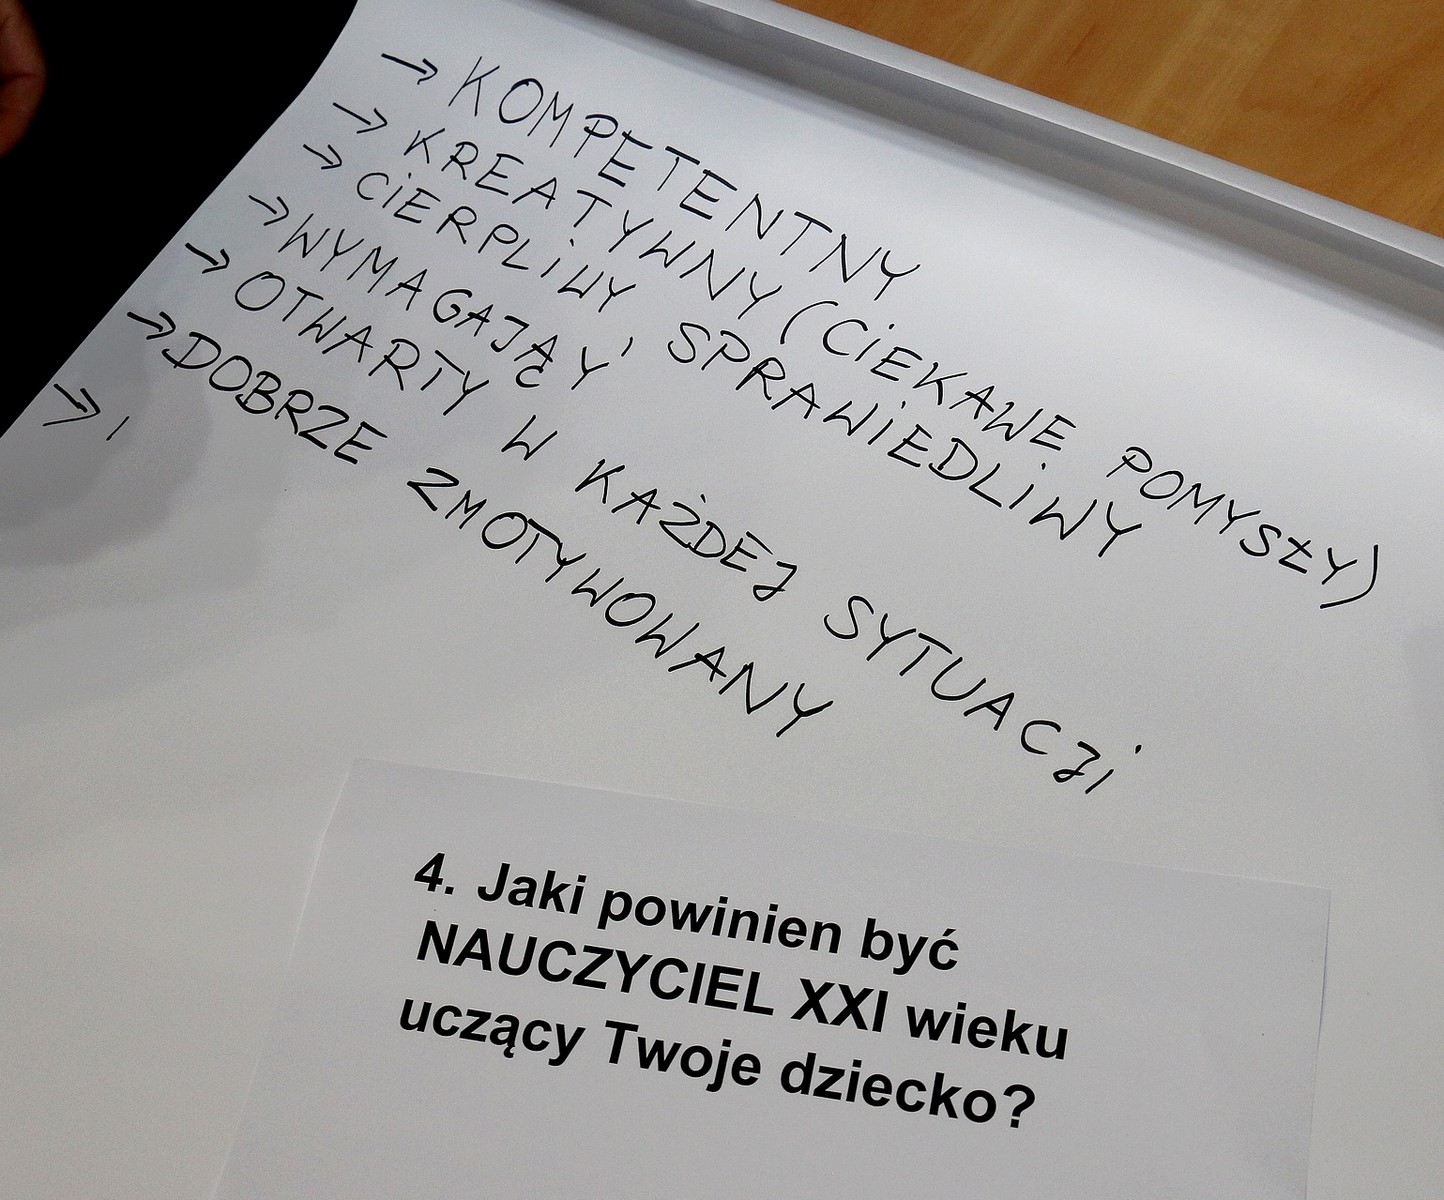 → KOMPETENTNY
→ KREATYWNY (CiEKAWE POMYSŁY)
→ CiERPLiWY, SPRAWiEDLiWY
→ WYMAGAJĄCY
→ OTWARTY W KAŻDEJ SYTUACJi
→ DOBRZE ZMOTYWOWANY
→
4. Jaki powinien być
NAUCZYCIEL XXI wieku
uczący Twoje dziecko?